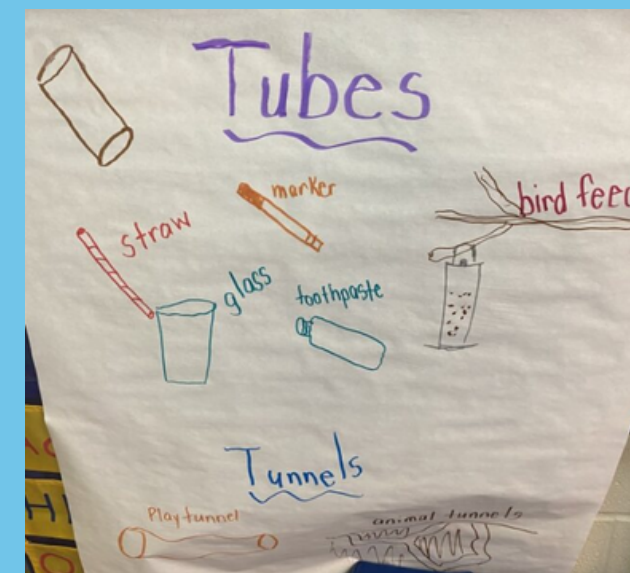 Tubes
marker
bird feed
straw
glass
toothpaste
Tunnels
Play tunnel
animal tunnels